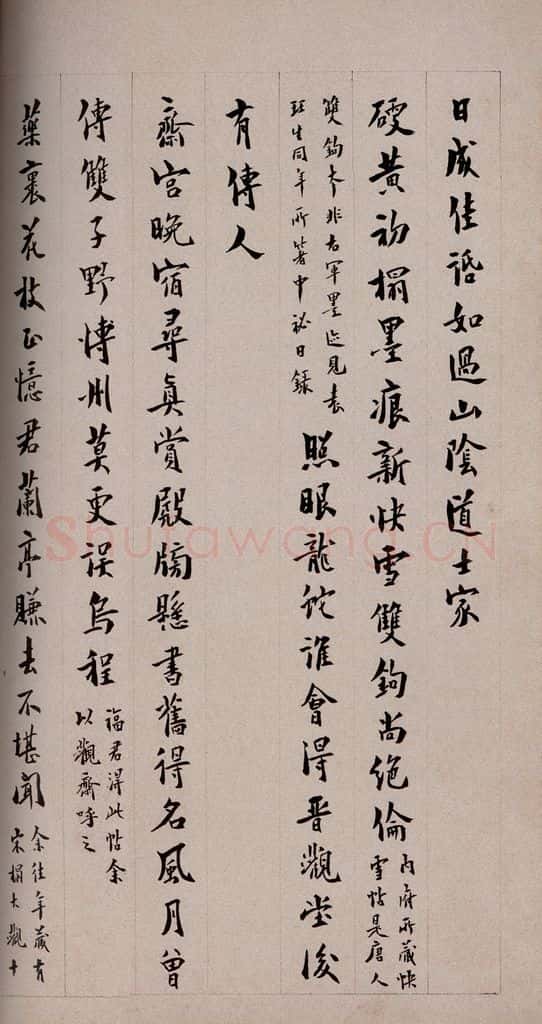 日成佳話如過山陰道士家
硬黃初搨墨痕新快雪雙鉤尚絕倫
內府所藏快
雪帖是唐人
雙鉤本非右軍墨迹見袁
珏生同年所著中祕日錄
照眼龍蛇誰會得晉觀堂後
有傳人
齋宮晚宿尋真賞殿牓懸書舊得名風月曾
傳雙子野愽州莫更誤烏程
福君得此帖余
以觀齋呼之
藥裹花枝正憶君蘭亭賺去不堪聞
余往年藏有
宋搨大觀十
Shufawang.CN